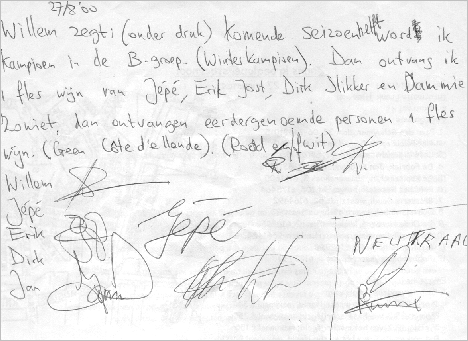 27/8 '00
Willem zegt: (onder druk) Komende seizoenhelft word ik
kampioen in de B-groep. (Winterkampioen). Dan ontvang ik
1 fles wijn van Jépé, Erik, Jost, Dirk Slikker en Dammie
Zoniet, dan ontvangen eerdergenoemde personen 1 fles
wijn. (Geen Côte d'ellande). (Rood of wit)
Willem
Jépé Jépé
Erik
Dirk
Jan
NEUTRAAL